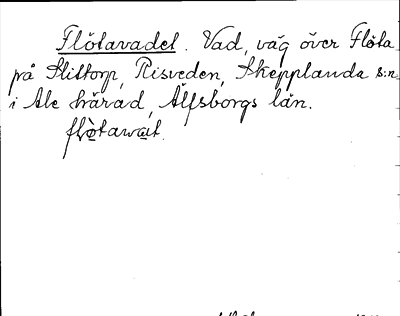 Flötavadet. Vad, väg över Flöta
på Slittorp, Risveden, Skepplanda s:n
i Ale härad, Älfsborgs län.
flötawat.